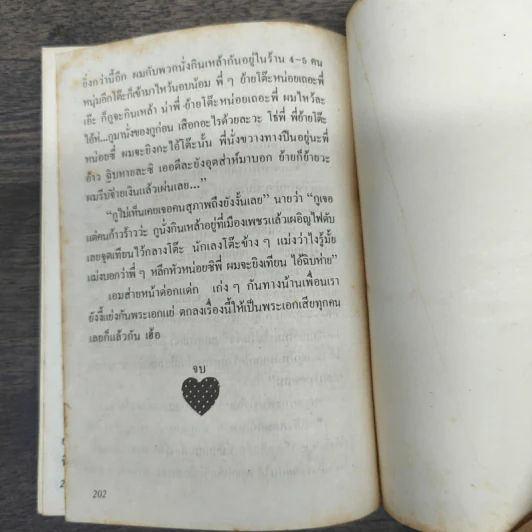 ยิ่งกว่านี้อีก ผมกับพวกนั่งกินเหล้ากันอยู่ในร้าน 4-5 คน
หนุ่มอีกโต๊ะก็เข้ามาไหว้นอบน้อม พี่ ๆ ย้ายโต๊ะหน่อยเถอะพี่
เอ๊ะ ก็กูจะกินเหล้า น่าพี่ ย้ายโต๊ะหน่อยเถอะพี่ ผมไหว้ละ
ไอ้ห่...กูมานั่งของกูก่อน เสือกอะไรด้วยละวะ โธ่พี่ พี่ย้ายโต๊ะ
หน่อยซี่ ผมจะยิงกะไอ้โต๊ะนั้น พี่นั่งขวางทางปืนอยู่นะพี่
อ้าว ฉิบหายละซิ เออดีละยังอุตส่าห์มาบอก ย้ายก็ย้ายวะ
ผมรีบจ่ายเงินแล้วเผ่นเลย..."
"กูไม่เห็นเคยเจอคนสุภาพถึงยังงั้นเลย" นายว่า "กูเจอ
แต่คนก้าวร้าวว่ะ กูนั่งกินเหล้าอยู่ที่เมืองเพชรแล้วเผอิญไฟดับ
เลยจุดเทียนไว้กลางโต๊ะ นักเลงโต๊ะข้าง ๆ แม่งว่าไงรู้มั้ย
แม่งบอกว่าพี่ ๆ หลีกหัวหน่อยซิพี่ ผมจะยิงเทียน ไอ้ฉิบห่าย"
เอมส่ายหน้าด่อกแด่ก เก่ง ๆ กันทางน้านเพื่อนเรา
ยังงี้แย่งกันพระเอกแย่ ตกลงเรื่องนี้ให้เป็นพระเอกเสียทุกคน
เลยก็แล้วกัน เฮ้อ
จบ
202